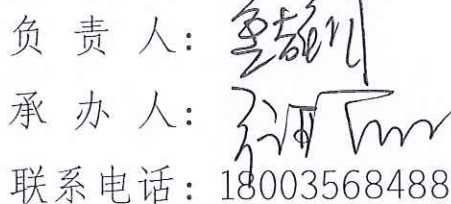 负责人:
承办人:
联系电话: 18003568488